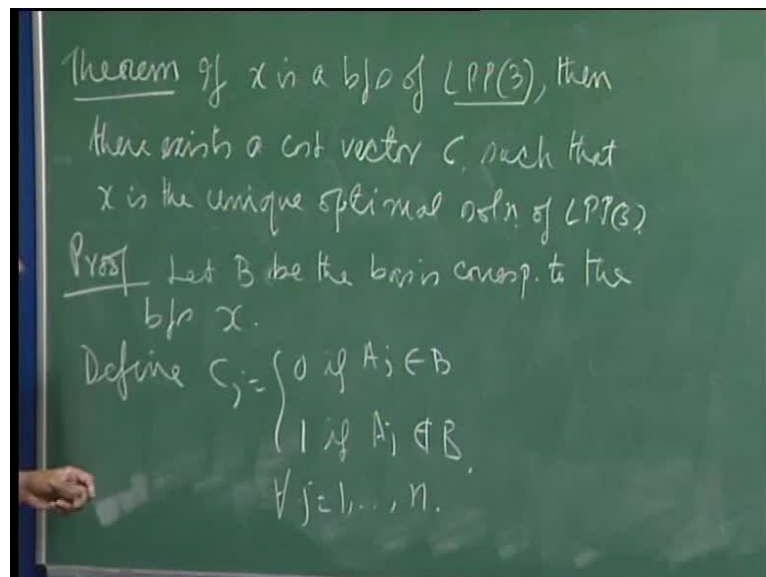 Theorem If x is a bfs of LPP(3), then
there exists a cost vector C, such that
x is the unique optimal soln. of LPP(3)
Proof Let B be the basis corresp. to the
bfs x.
Define Cj = { 0 if Aj ∈ B
1 if Aj ∉ B,
∀ j=1,..., n.